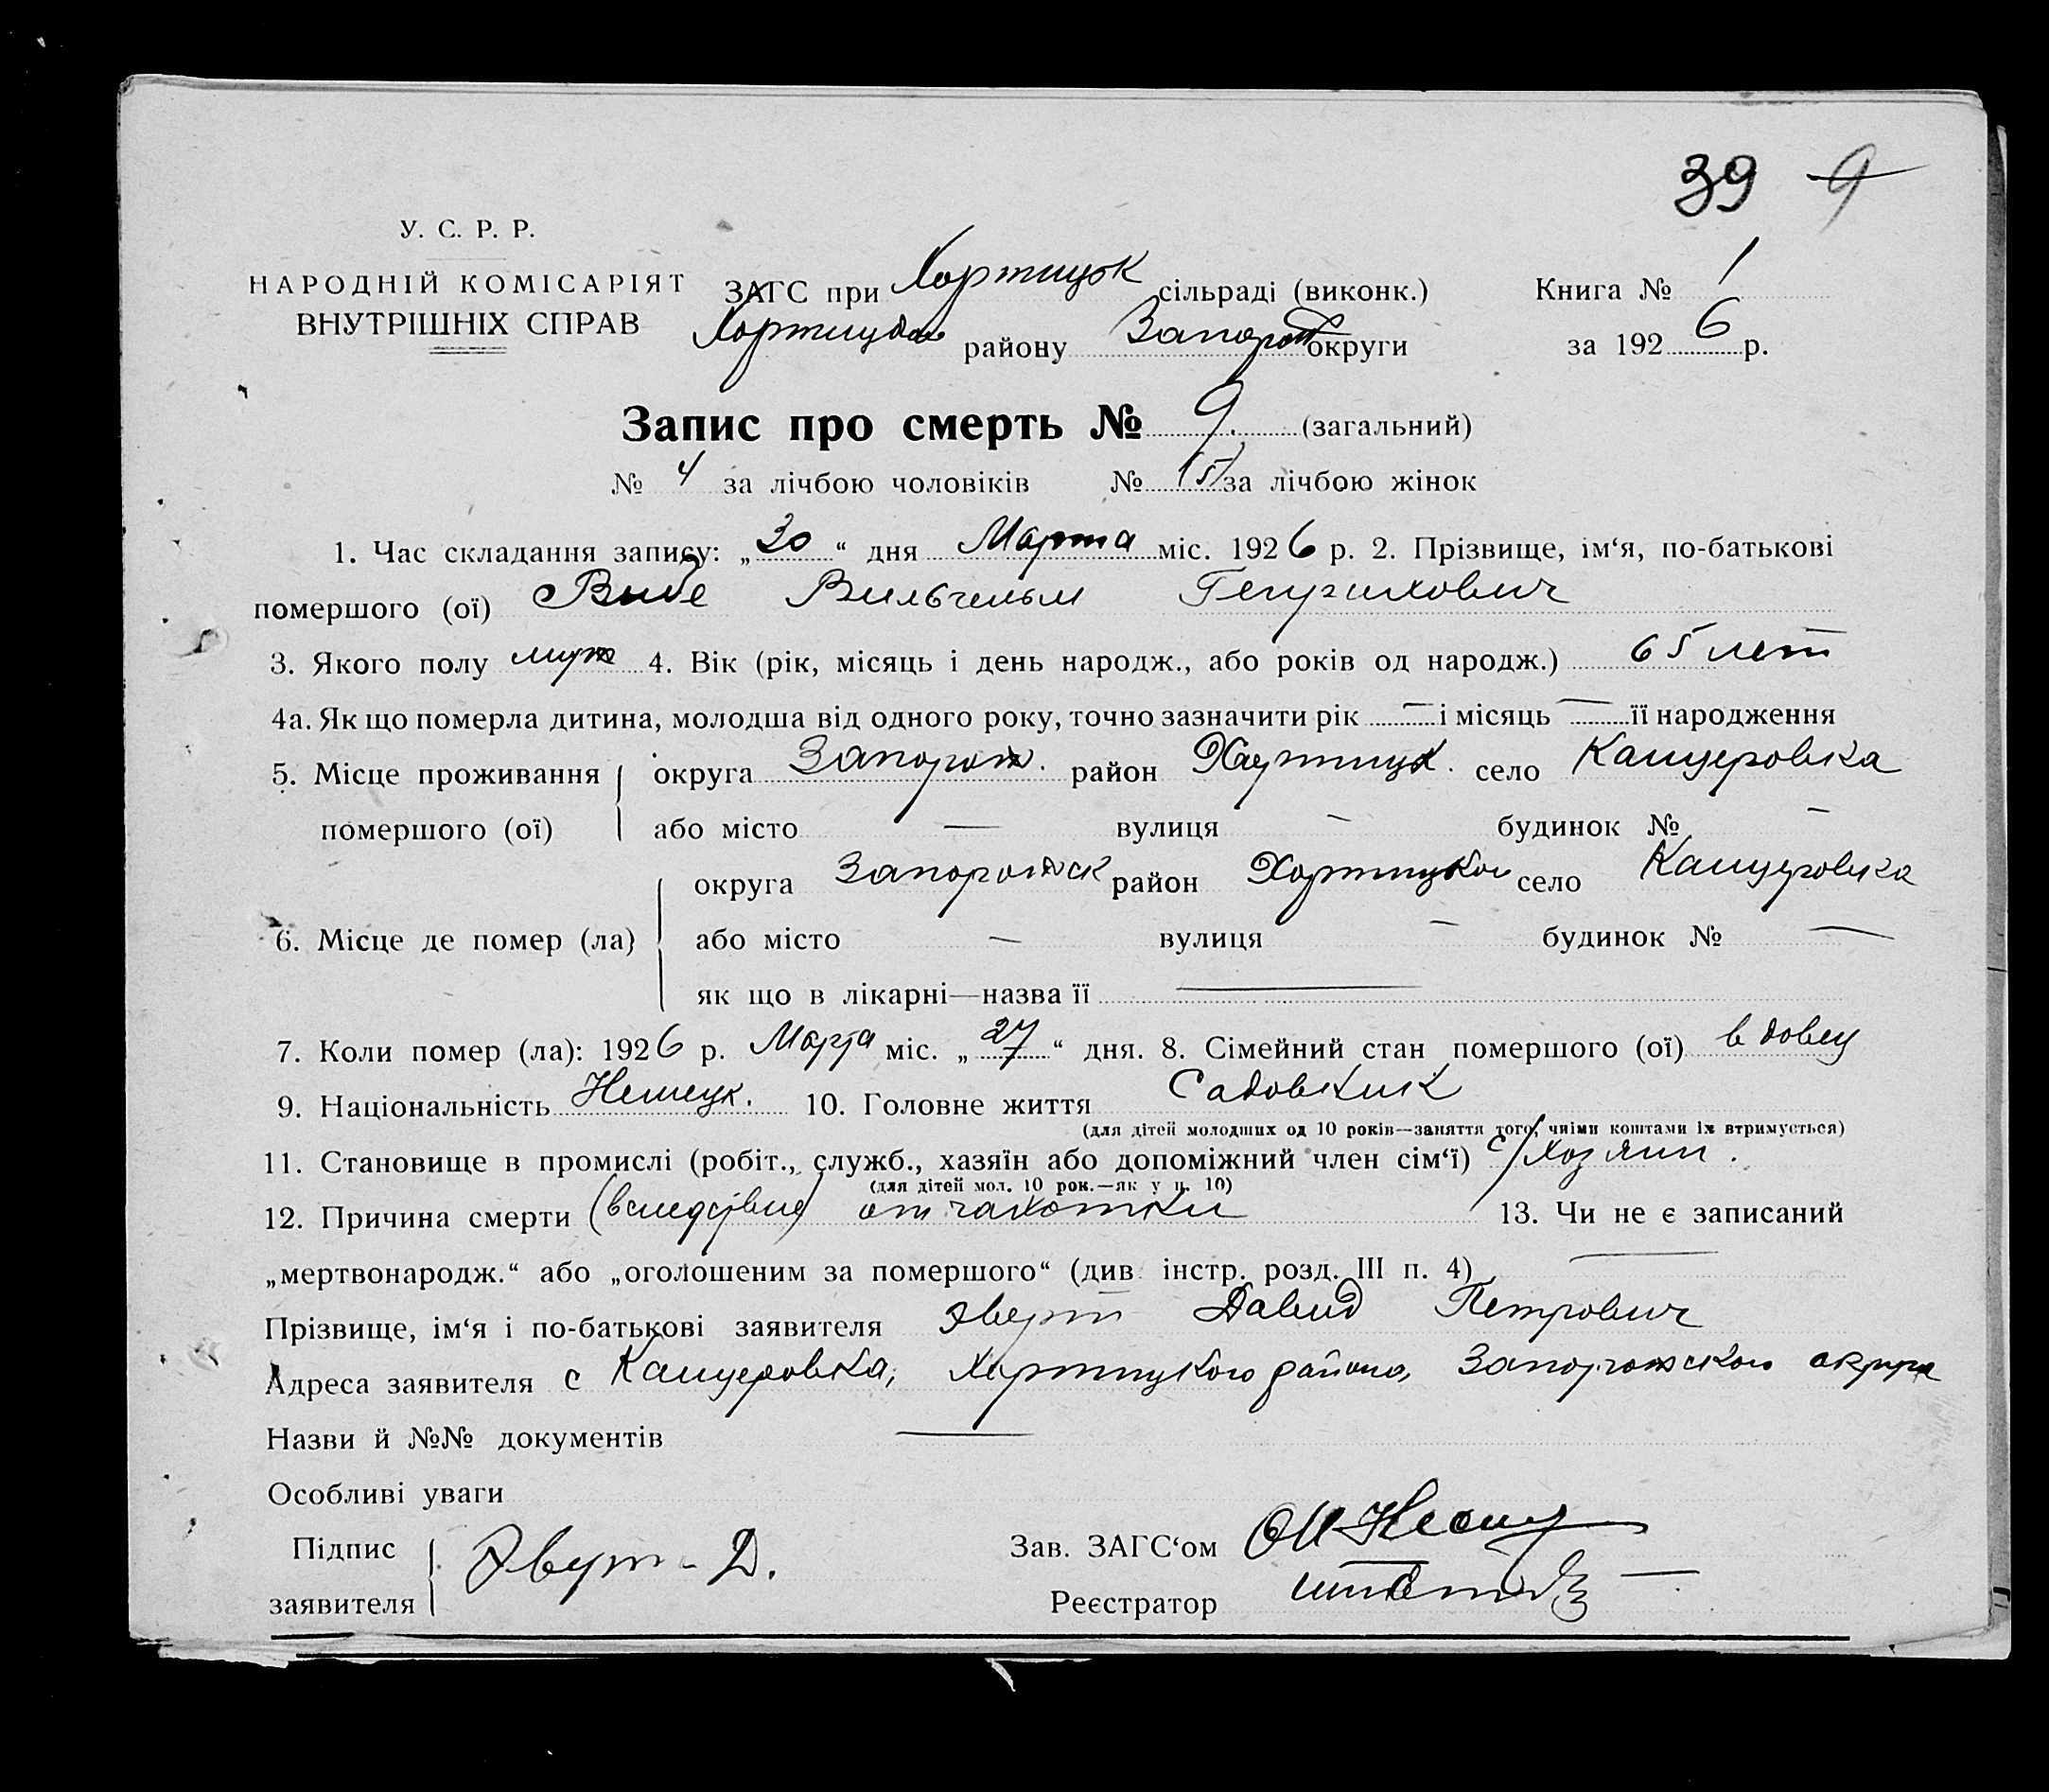 39 9
У. С. Р. Р.
НАРОДНІЙ КОМІСАРІЯТ
ВНУТРІШНІХ СПРАВ
ЗАГС при Хортицьк сільраді (виконк.) Книга № 1
району Запорож округи за 1926 р.
Запис про смерть № 9 (загальний)
№ 4 за лічбою чоловіків № (5) за лічбою жінок
1. Час складання запису: „30“ дня Марта міс. 1926 р. 2. Прізвище, ім‘я, по-батькові
помершого (ої) Вибе Вильгельм Генрихович
3. Якого полу муж 4. Вік (рік, місяць і день народж., або років од народж.) 65 лет
4а. Як що померла дитина, молодша від одного року, точно зазначити рік — і місяць — її народження
5. Місце проживання округа Запорож. район Хортицк. село Канцеровка
помершого (ої) або місто — вулиця — будинок № —
округа Запорожск район Хортицкого село Канцеровка
6. Місце де помер (ла) або місто — вулиця — будинок № —
як що в лікарні—назва її —
7. Коли помер (ла): 1926 р. Марта міс. „27“ дня. 8. Сімейний стан помершого (ої) вдовец
9. Національність Немецк. 10. Головне життя Садовник
(для дітей молодших од 10 років—заняття того, чиїми коштами їх втримується)
11. Становище в промислі (робіт., служб., хазяїн або допоміжний член сім‘ї) с/хозяин.
(для дітей мол. 10 рок.—як у п. 10)
12. Причина смерти (вследствие) от чахотки 13. Чи не є записаний
„мертвонародж.“ або „оголошеним за помершого“ (див. інстр. розд. III п. 4) —
Прізвище, ім‘я і по-батькові заявителя Эверт Давид Петрович
Адреса заявителя с Канцеровка, Хортицкого района, Запорожского округа
Назви й №№ документів —
Особливі уваги
Підпис Эверт-Д. Зав. ЗАГС‘ом
заявителя Реєстратор